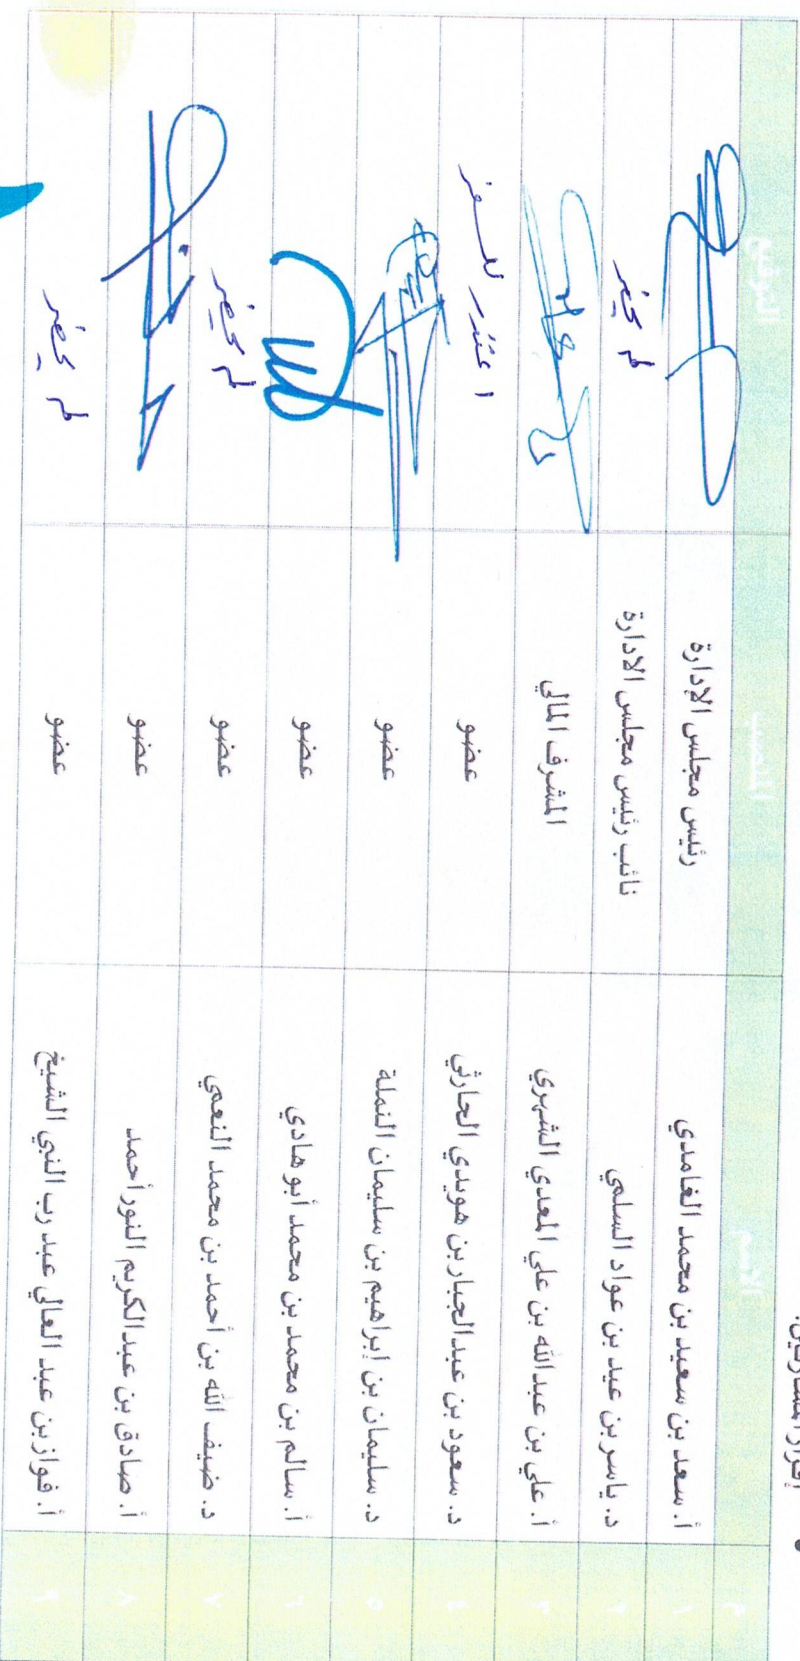 إقرار المشاركين:
م الاسم المنصب التوقيع
١ أ. سعد بن سعيد بن محمد الغامدي رئيس مجلس الإدارة
٢ د. ياسر بن عيد بن عواد السلمي نائب رئيس مجلس الادارة لم يحضر
٣ أ. علي بن عبدالله بن علي المعدي الشهري المشرف المالي
٤ د. سعود بن عبدالجبار بن هويدي الحارثي عضو اعتذر للسفر
٥ د. سليمان بن إبراهيم بن سليمان النملة عضو
٦ أ. سالم بن محمد بن محمد أبو هادي عضو
٧ د. ضيف الله بن أحمد بن محمد النعمي عضو لم يحضر
٨ أ. صادق بن عبدالكريم النور أحمد عضو
٩ أ. فواز بن عبد العالي عبد رب النبي الشيخ عضو لم يحضر